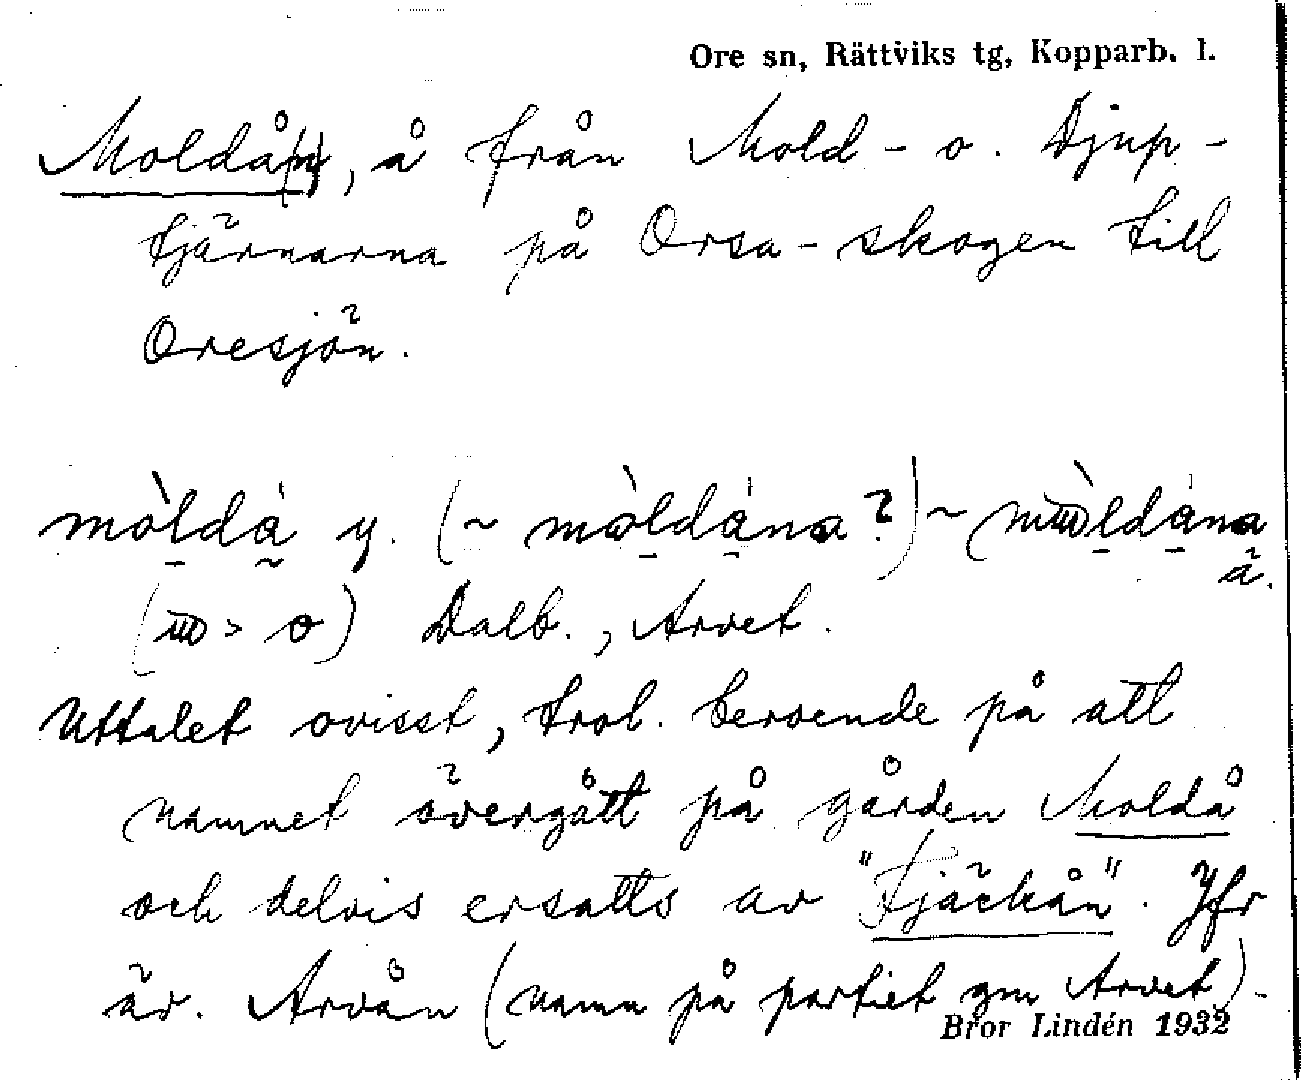 Ore sn, Rättviks tg, Kopparb. l.
Moldå(n), å från Mold- o. Djup-
tjärnarna på Orsa-skogen till
Oresjön.
y. (~ ?) ~
ä.
( > o) Dalb., Arvet.
Uttalet ovisst, trol. beroende på att
namnet övergått på gården Moldå
och delvis ersatts av "Tjäckån". Jfr
äv. Arvån (namn på partiet gm Arvet).
Bror Lindén 1932